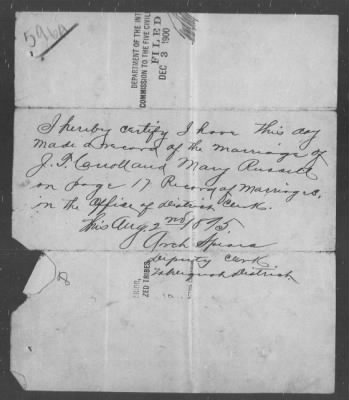 596A
DEPARTMENT OF THE INT
COMMISSION TO THE FIVE CIVIL
FILED
DEC 3 1900
I hereby certify I have this day
made a record of the marriage of
J. T. Carroll and Mary Russell
on page 17 Record of Marriages,
in the Office of District Clerk.
This Aug. 2nd 1895
Arch Spears
Deputy Clerk
Tahlequah District.
ERIOR,
ZED TRIBES.
8